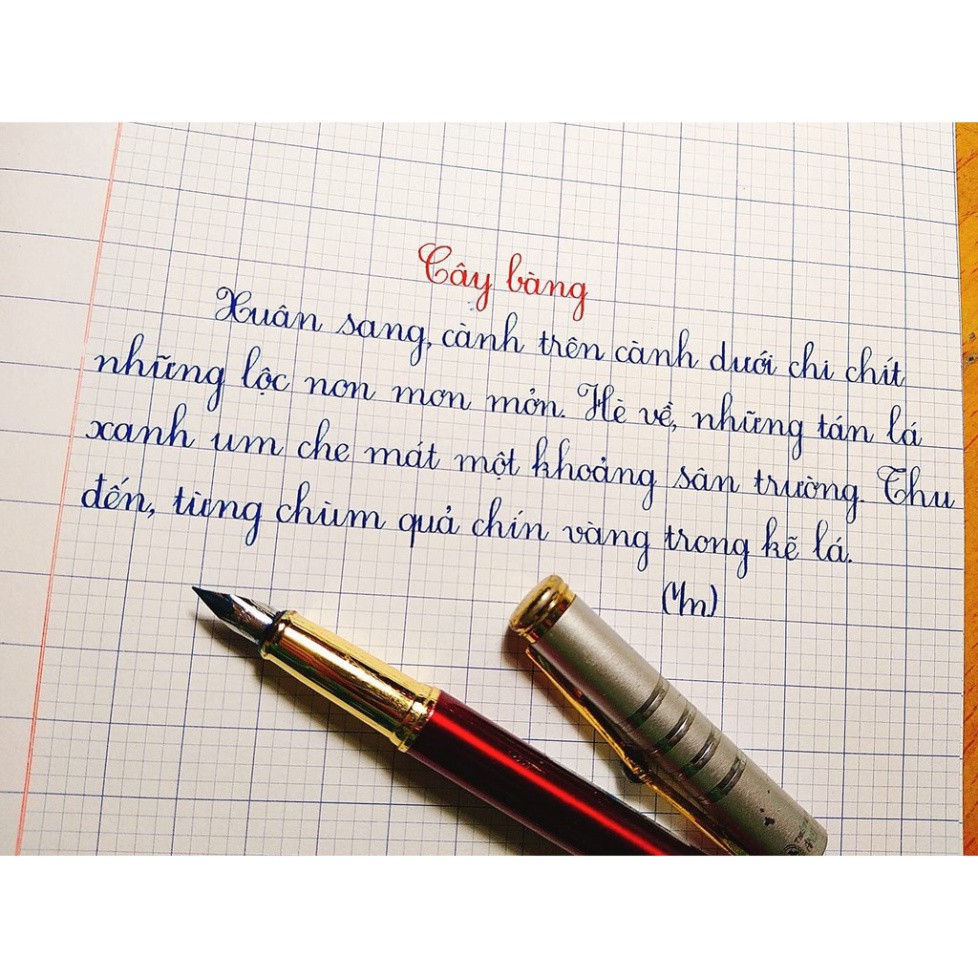 Cây bàng
Xuân sang, cành trên cành dưới chi chít
những lộc non mơn mởn. Hè về, những tán lá
xanh um che mát một khoảng sân trường. Thu
đến, từng chùm quả chín vàng trong kẽ lá.